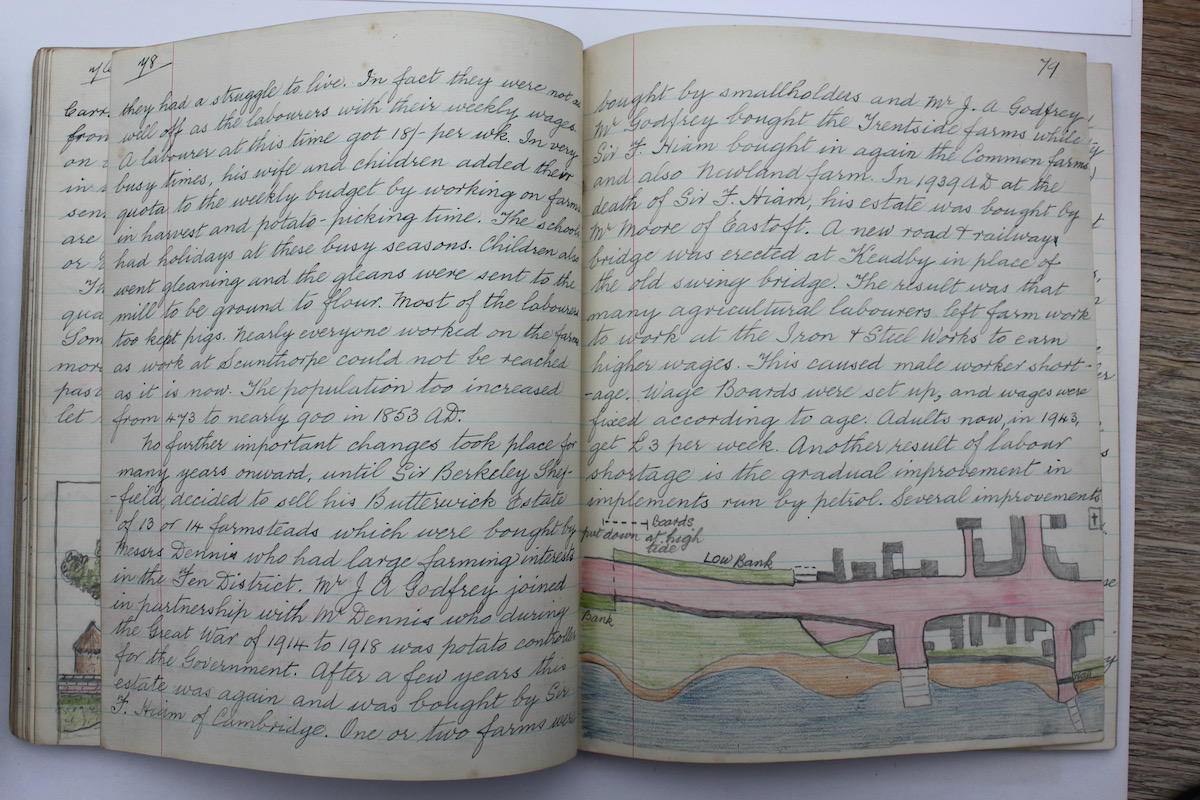 76
Carr
from
on
in
sen
are
or
Th
qua
Som
more
pas
let
78
they had a struggle to live. In fact they were not as
well off as the labourers with their weekly wages.
A labourer at this time got 18/- per wk. In very
busy times, his wife and children added their
quota to the weekly budget by working on farms
in harvest and potato-picking time. The schools
had holidays at these busy seasons. Children also
went gleaning and the gleans were sent to the
mill to be ground to flour. Most of the labourers
too kept pigs. Nearly everyone worked on the farms
as work at Scunthorpe could not be reached
as it is now. The population too increased
from 473 to nearly 900 in 1853 AD.
No further important changes took place for
many years onward, until Sir Berkeley Shef-
-field, decided to sell his Butterwick Estate
of 13 or 14 farmsteads which were bought by
Messrs Dennis who had large farming interests
in the Fen District. Mr J A Godfrey joined
in partnership with Mr Dennis who during
the Great War of 1914 to 1918 was potato controller
for the Government. After a few years this
estate was again and was bought by Sir
F. Hiam of Cambridge. One or two farms were
79
bought by smallholders and Mr J. A Godfrey,
Mr Godfrey bought the Trentside farms while
Sir F. Hiam bought in again the Common farms
and also Newland farm. In 1939 AD at the
death of Sir F. Hiam, his estate was bought by
Mr Moore of Eastoft. A new road & railway
bridge was erected at Keadby in place of
the old swing bridge. The result was that
many agricultural labourers left farm work
to work at the Iron & Steel Works to earn
higher wages. This caused male worker short-
-age. Wage Boards were set up, and wages were
fixed according to age. Adults now, in 1943,
get £3 per week. Another result of labour
shortage is the gradual improvement in
implements run by petrol. Several improvements
Boards
put down at high
tide
Low Bank
Bank